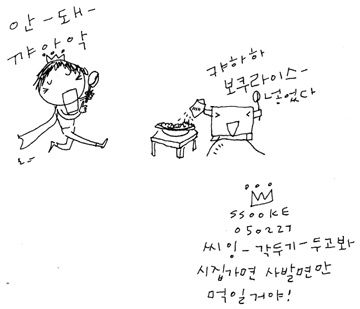 안-돼-
꺄아악
캬하하
보쿠라이스-
넣었다
SSOOKE
050227
씨잉-각두기-두고봐
시집가면 사발면만
먹일거야!